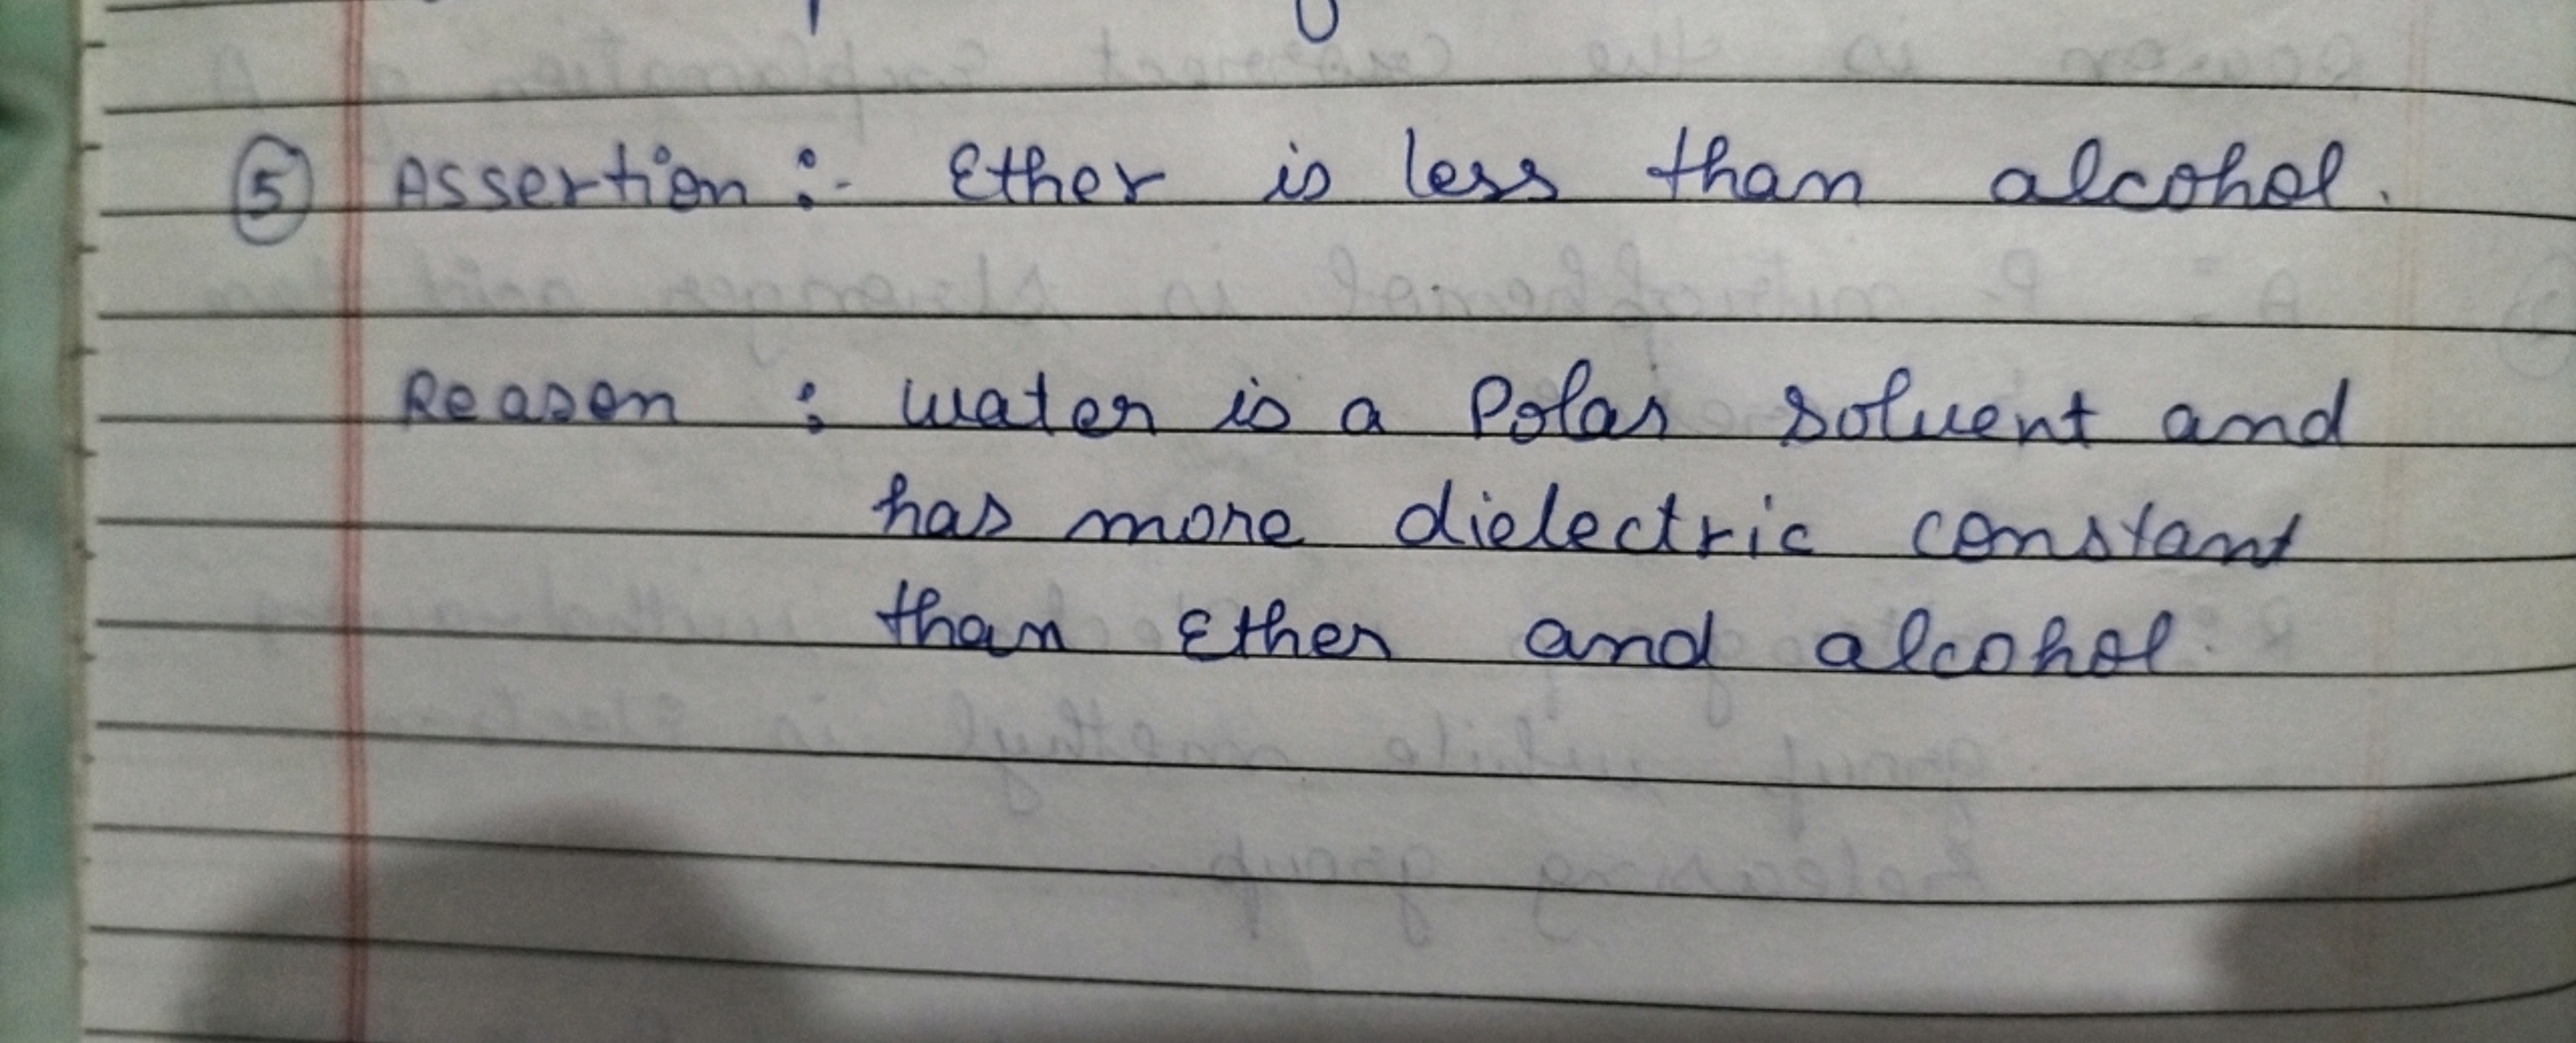 ⑤ Assertion :- Ether is less than alcohol.
Reason : water is a Polar solvent and
has more dielectric constant
than Ether and alcohol.